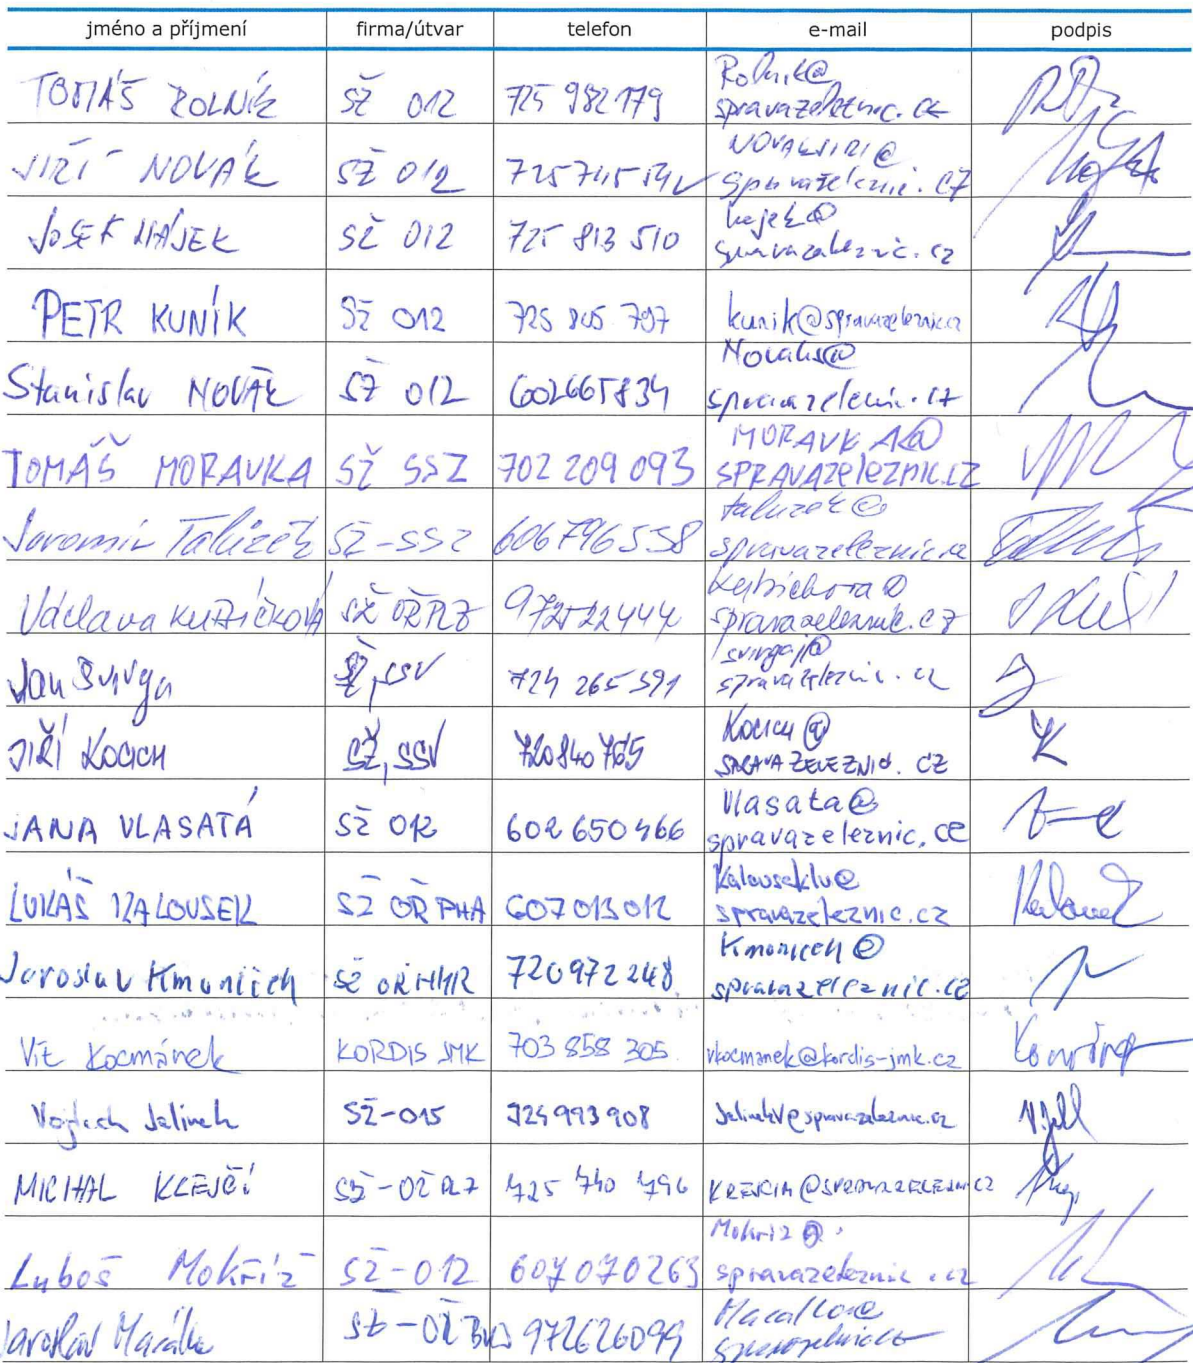 jméno a příjmení firma/útvar telefon e-mail podpis
TOMÁŠ ROLNÍK SŽ 012 725 982 179 Rolnik@
spravazeleznic.cz
JIŘÍ NOVÁK SŽ 012 NOVAKJIRI@
spravazeleznic.cz
JOSEF HÁJEK SŽ 012 725 813 510 hajek@
spravazeleznic.cz
PETR KUNÍK SŽ 012 725 805 797 kunik@spravazeleznic.cz
Stanislav NOVÁK SŽ 012 602665834 Novaks@
spravazeleznic.cz
TOMÁŠ MORAVKA SŽ SSZ 702 209 093 MORAVKA@
SPRAVAZELEZNIC.CZ
Jaromír Talúžek SŽ-SSZ 606796558 taluzek@
spravazeleznic.cz
Václava SŽ OŘ PLZ 972522444
spravazeleznic.cz
Jan Svinga SŽ, SSV 724 265 591 svingaj@
spravazeleznic.cz
JIŘÍ KOCICH SŽ, SSV 720840765 Kocich@
SPRAVAZELEZNIC.CZ
JANA VLASATÁ SŽ 012 602 650 466 Vlasata@
spravazeleznic.cz
LUKÁŠ KALOUSEK SŽ OŘ PHA 607013012 Kalouseklu@
spravazeleznic.cz
Jaroslav Kmoníček SŽ OŘ HKR 720972248 Kmonicek@
spravazeleznic.cz
Vít Kocmánek KORDIS JMK 703 858 305 vkocmanek@kordis-jmk.cz
Vojtěch Jelínek SŽ-015 724993908 JelinekV@spravazeleznic.cz
MICHAL KLEJČÍ SŽ-OŘ PLZ 725 740 796
Luboš Mokříž SŽ-012 607070263 Mokriz@
spravazeleznic.cz
Jaroslav SŽ-OŘ 972626099